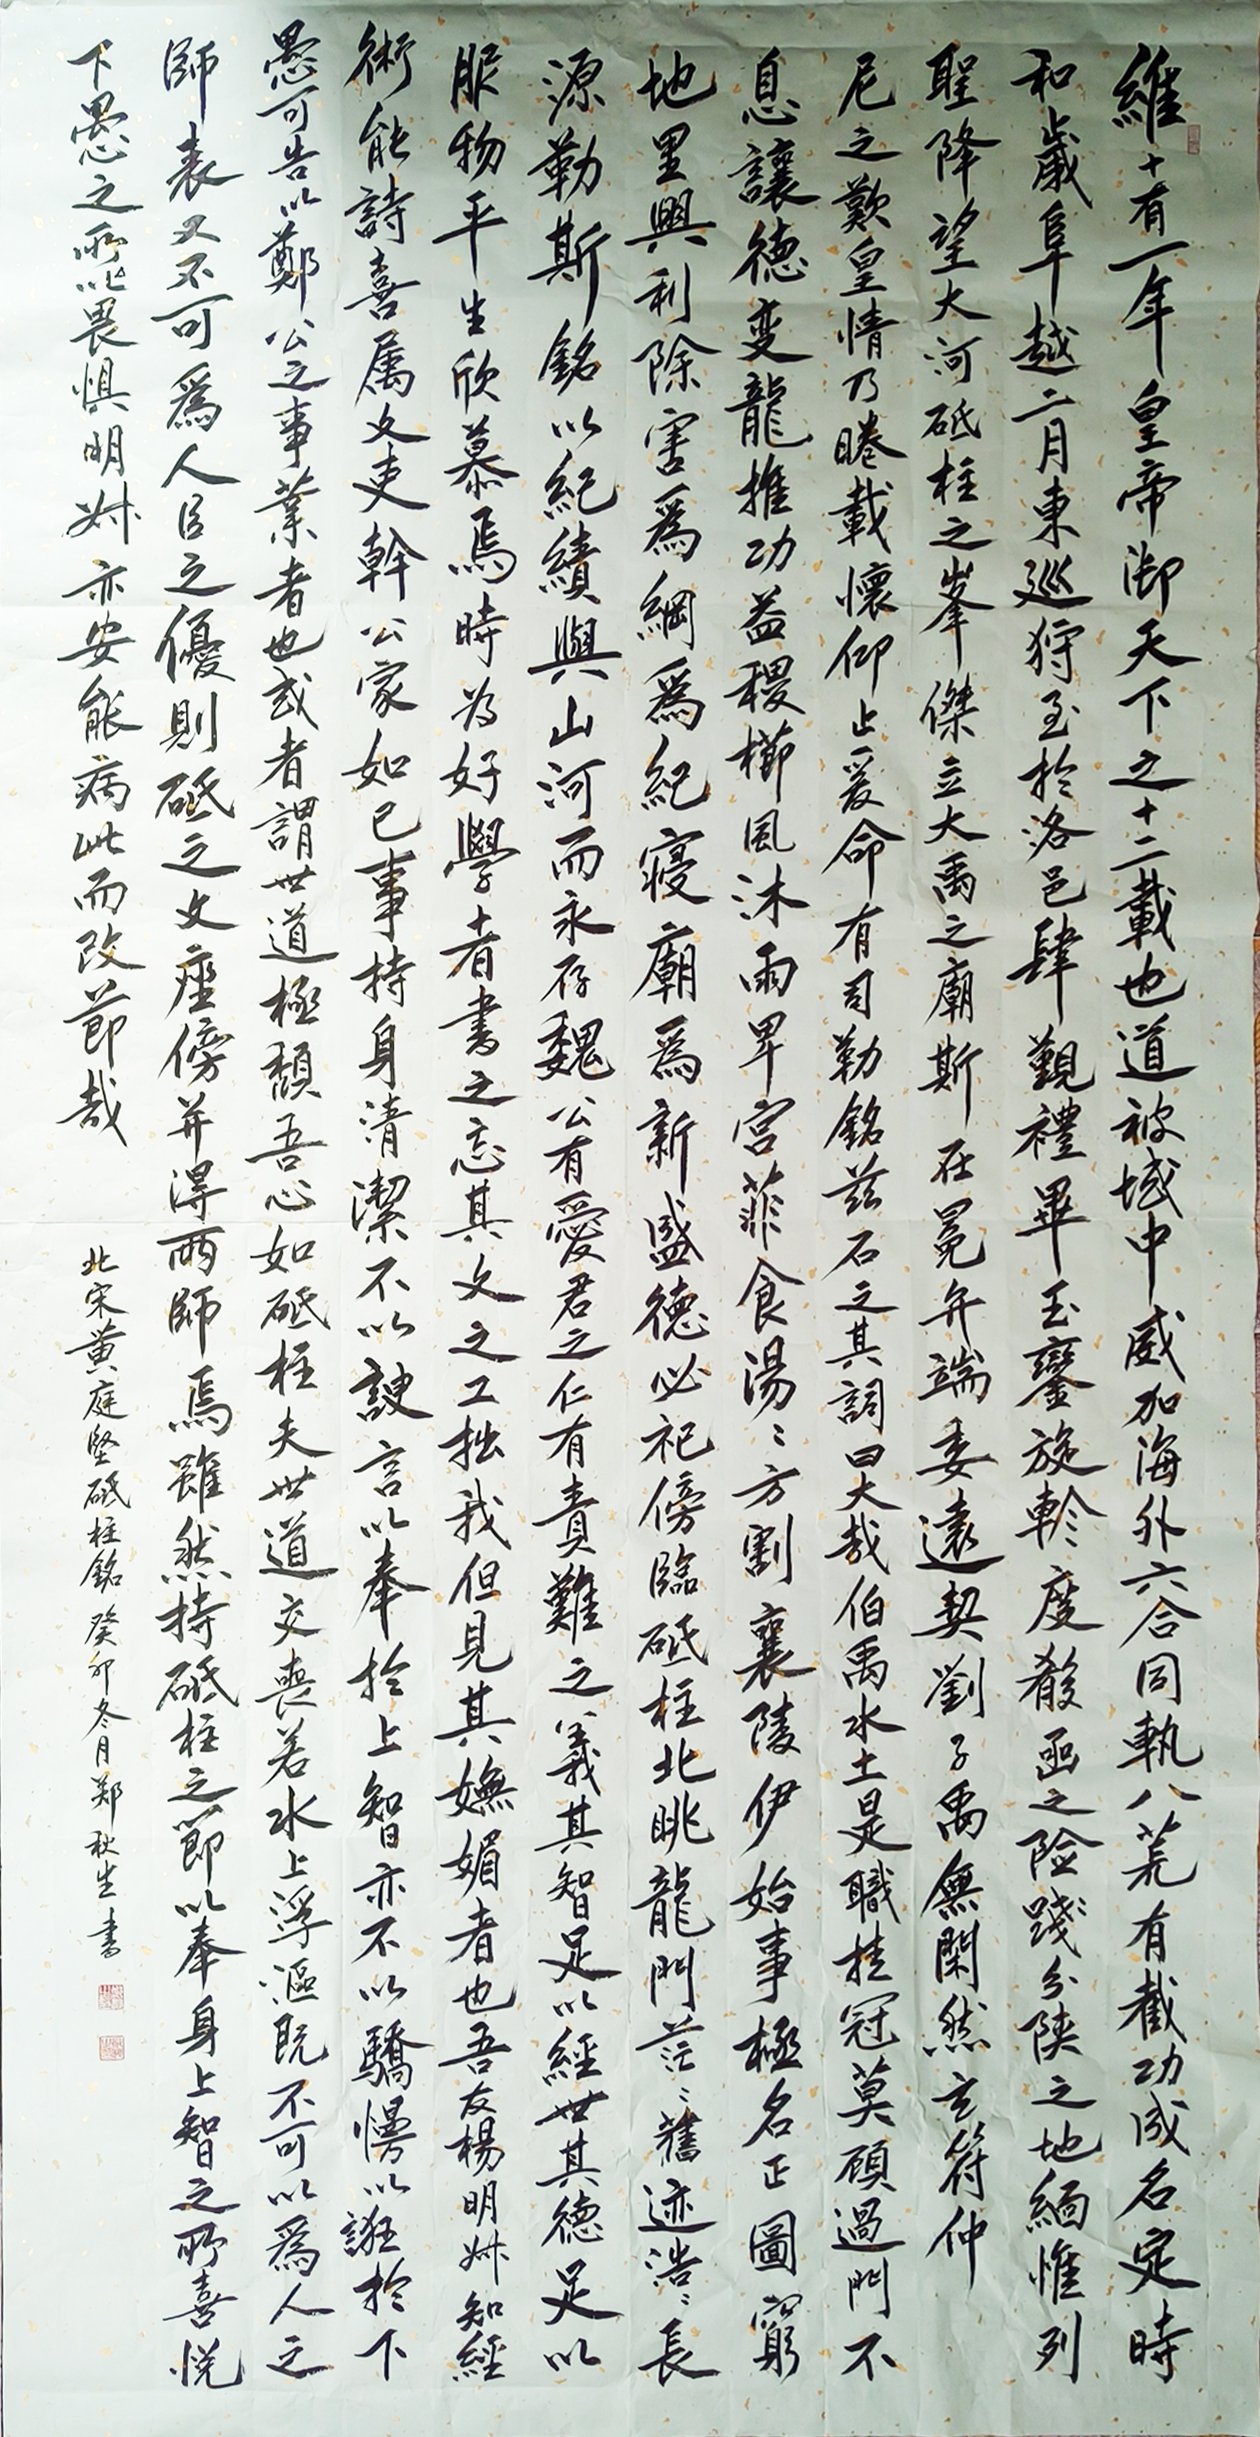 維十有一年皇帝御天下之十二載也道被域中威加海外六合同軌八荒有截功成名定時
和歲阜越二月東巡狩至於洛邑肆覲禮畢玉鑾旋軫度殽函之險踐分陝之地緬惟列
聖降望大河砥柱之峯傑立大禹之廟斯在冕弁端委遠契劉子禹無閒然玄符仲
尼之歎皇情乃睠載懷仰止爰命有司勒銘茲石之其詞曰大哉伯禹水土是職挂冠莫顧過門不
息讓德變龍推功益稷櫛風沐雨卑宮菲食湯〻方割襄陵伊始事極名正圖窮
地里興利除害爲綱爲紀寢廟爲新盛德必祀傍臨砥柱北眺龍門茫〻舊迹浩〻長
源勒斯銘以紀績與山河而永存魏公有愛君之仁有責難之義其智足以經世其德足以
服物平生欣慕焉時为好學者書之忘其文之工拙我但見其嫵媚者也吾友楊明叔知經
術能詩喜属文吏幹公家如己事持身清潔不以諛言以奉於上智亦不以驕慢以誑於下
愚可告以鄭公之事業者也或者謂世道極頹吾心如砥柱夫世道交喪若水上浮漚既不可以爲人之
師表又不可爲人臣之優則砥之文座傍并得兩師焉雖然持砥柱之節以奉身上智之所喜悅
下愚之所以畏惧明叔亦安能病此而改節哉
北宋黄庭堅砥柱銘 癸卯冬月鄭秋生書